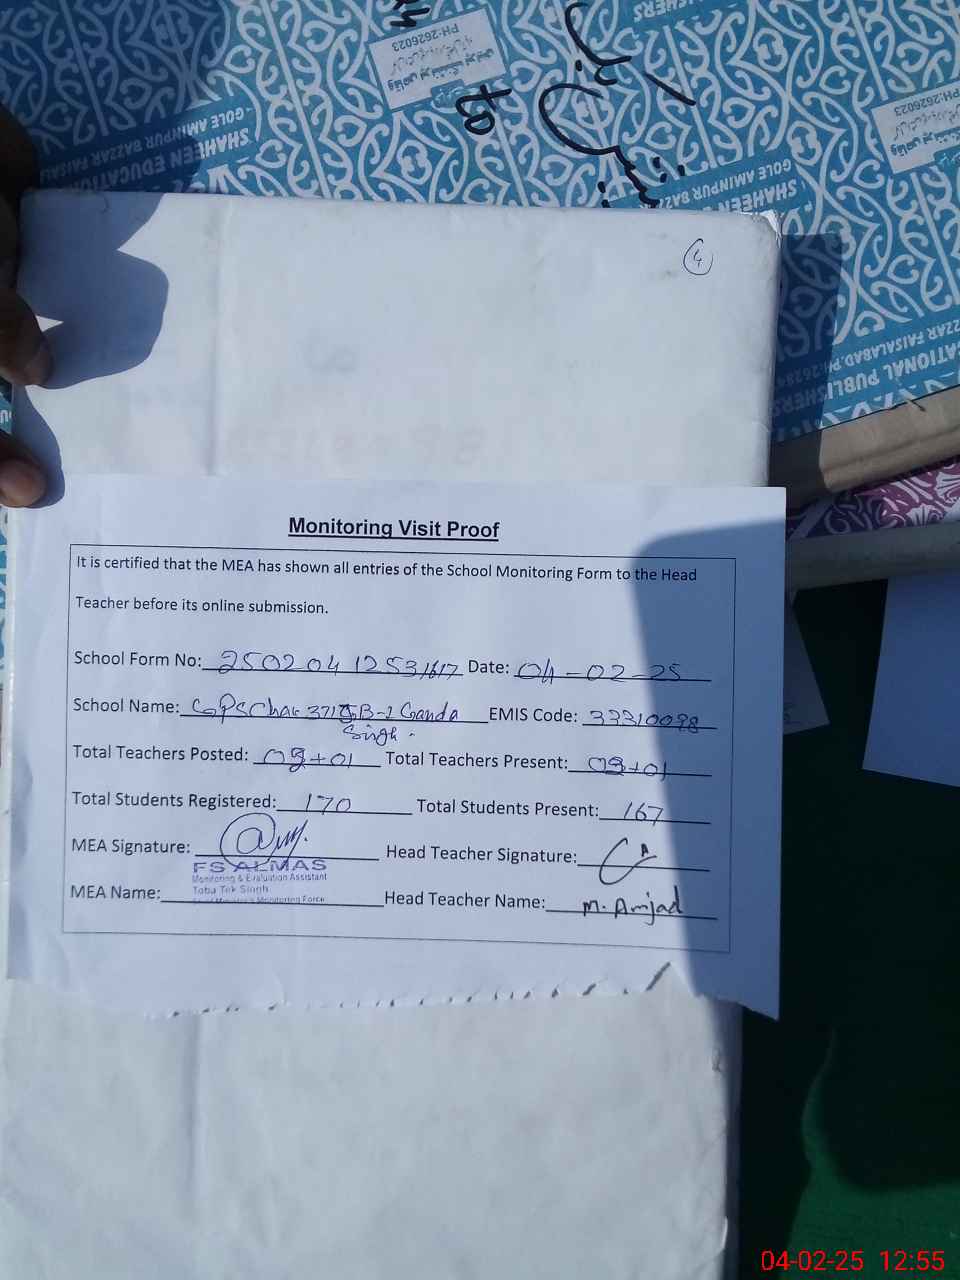 PH:2626023
SHAHEEN EDUCATIONAL
GOLE AMINPUR BAZZAR FAISAL
to
GOLE AMINPUR BAZZAR
SHAHEEN
PH:2626023
ZZAR FAISALABAD.PH:2626
ATIONAL PUBLISHERS
4
Monitoring Visit Proof
It is certified that the MEA has shown all entries of the School Monitoring Form to the Head
Teacher before its online submission.
School Form No: 250204 1253 1617 Date: 04-02-25
School Name: GPS Chak 371 JB-1 Ganda EMIS Code: 33310098
Singh.
Total Teachers Posted: 03+01 Total Teachers Present: 03+01
Total Students Registered: 170 Total Students Present: 167
MEA Signature: Head Teacher Signature:
FS ALMAS
Monitoring & Evaluation Assistant
Toba Tek Singh
Monitoring Force
MEA Name: Head Teacher Name: M. Amjad
04-02-25 12:55